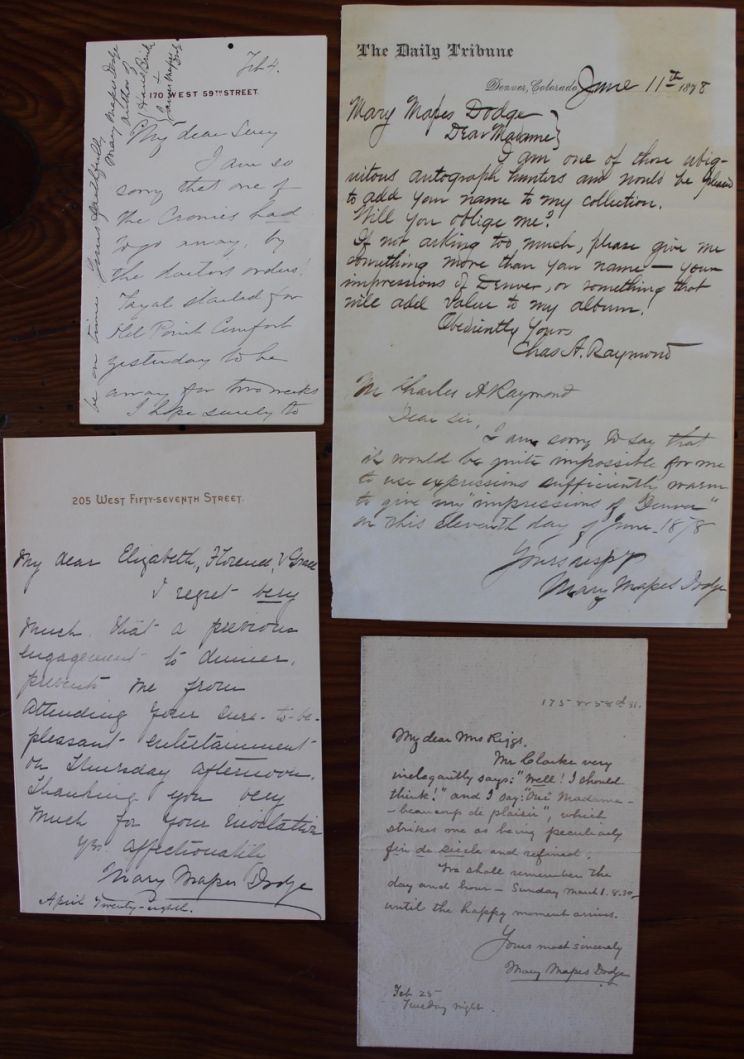 Feb 4.
170 WEST 59TH STREET.
My dear
I am so
sorry that one of
the Cronies had
to go away, by
the doctors orders!
started for
Old Point Comfort
yesterday to be
away for two weeks
I hope surely to
be on time. Yours faithfully
Mary Mapes Dodge
author of
Hans Brink
&
James Mapes
Dodge
The Daily Tribune
Denver, Colorado, June 11th 1878
Mary Mapes Dodge
Dear Madame}
I am one of those ubiq-
uitous autograph hunters and would be pleased
to add your name to my collection.
Will you oblige me?
If not asking too much, please give me
something more than your name — your
impressions of Denver, or something that
will add value to my album.
Obediently Yours
Chas A. Raymond
Mr Charles A Raymond
Dear Sir,
I am sorry to say that
it would be quite impossible for me
to use expressions sufficiently warm
to give my "impressions of Denver"
on this Eleventh day of June 1878
Yours resp'y
Mary Mapes Dodge
205 WEST FIFTY-SEVENTH STREET.
My dear Elizabeth, Florence, & Grace
I regret very
much that a previous
engagement to dinner,
prevents me from
attending your sure-to-be-
pleasant entertainment
on Thursday afternoon.
Thanking you very
much for your invitation
Yrs affectionately
Mary Mapes Dodge
April Twenty-eighth.
175 W 58th St.
My dear Mrs Riggs,
Mr Clarke very
inelegantly says: "Well! I should
think!" and I say: "Oui Madame -
- beaucoup de plaisir", which
strikes one as being peculiarly
fin de siecle and refined.
We shall remember the
day and hour — Sunday March 1. 8.30 —
until the happy moment arrives.
Yours most sincerely
Mary Mapes Dodge
Feb 25
Tuesday night.